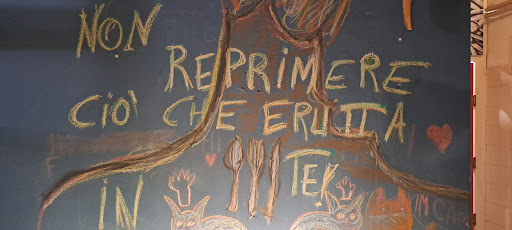 NON
REPRIMERE
CIO' CHE ERUTTA
IN TE!